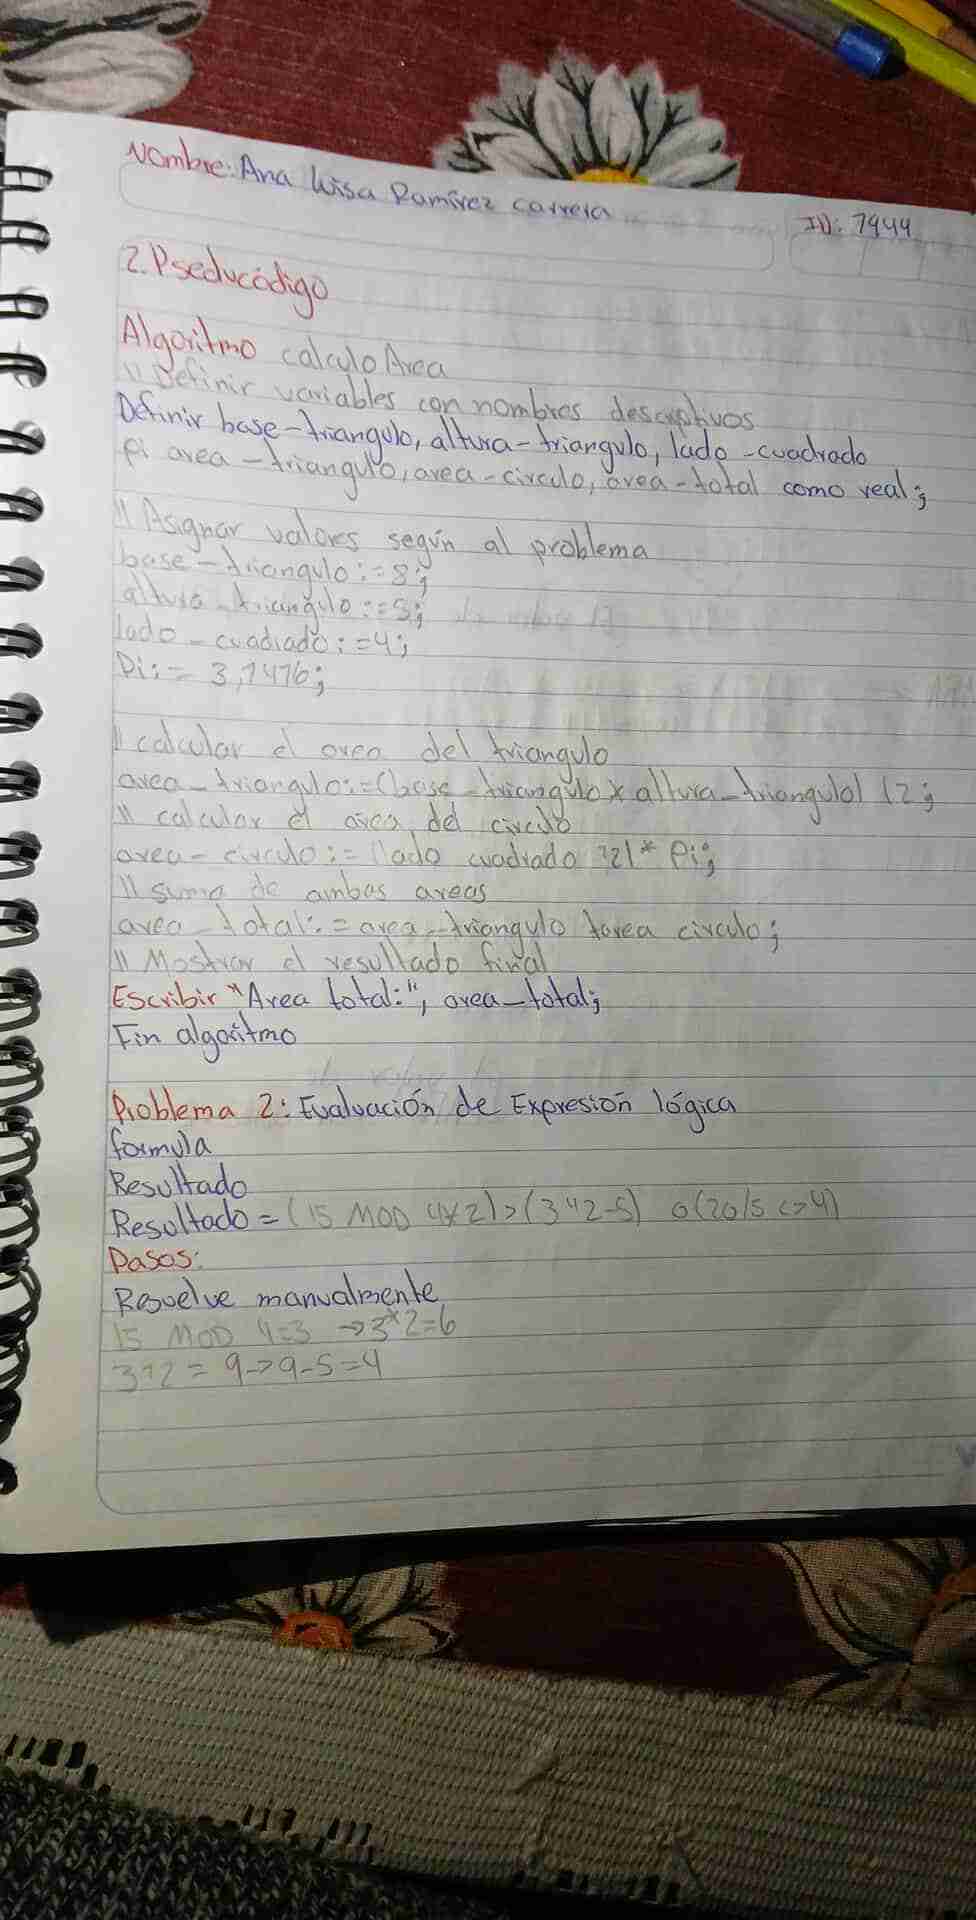 Nombre: Ana Luisa Ramírez Carrera
ID: 7944
2. Pseducódigo
Algoritmo calculo Area
// Definir variables con nombres descriptivos
Definir base-triangulo, altura-triangulo, lado-cuadrado
Pi area-triangulo, area-circulo, area-total como real;
// Asignar valores según al problema
base-triangulo:=8;
altura-triangulo:=5;
lado-cuadrado:=4;
Pi:= 3,1416;
// calcular el area del triangulo
area-triangulo:=(base-triangulo * altura-triangulo) / 2;
// calcular el area del circulo
area-circulo:= (lado cuadrado ?2)* Pi;
// suma de ambas areas
area total:= area-triangulo + area circulo;
// Mostrar el resultado final
Escribir "Area total:", area-total;
Fin algoritmo
Problema 2: Evaluación de Expresión lógica
formula
Resultado
Resultado = (15 MOD 4*2) > (3^2-5) o (20/5 <> 4)
Pasos:
Resuelve manualmente
15 MOD 4=3 → 3*2=6
3^2 = 9 -> 9-5=4